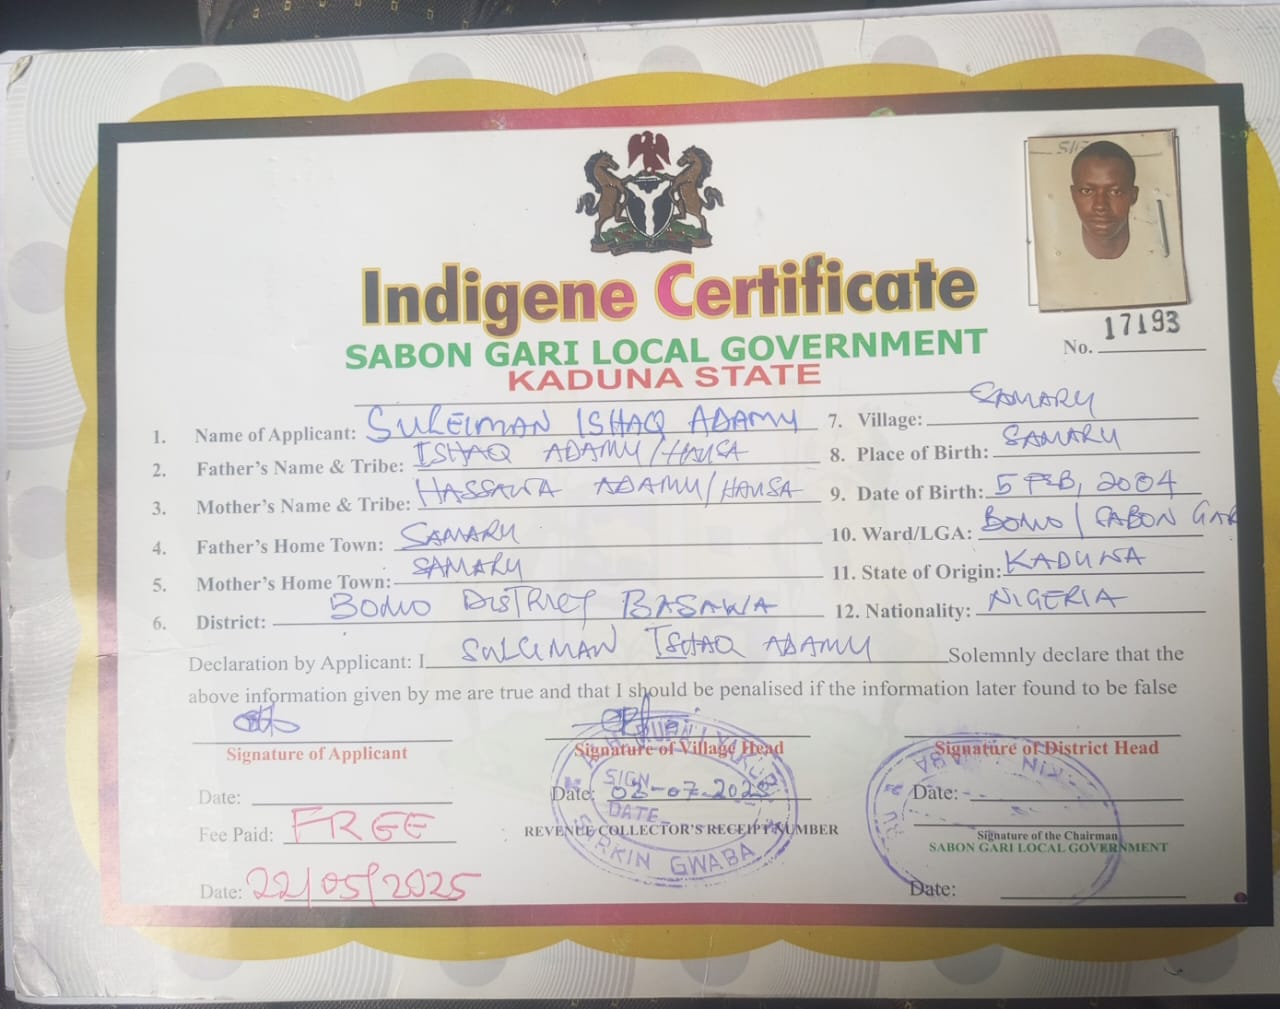 Indigene Certificate
SABON GARI LOCAL GOVERNMENT
KADUNA STATE
No. 17193
1. Name of Applicant: SULEIMAN ISHAQ ADAMU
2. Father's Name & Tribe: ISHAQ ADAMU/HAUSA
3. Mother's Name & Tribe: HASSANA ADAMU/HAUSA
4. Father's Home Town: SAMARU
5. Mother's Home Town: SAMARU
6. District: BOMO DISTRICT BASAWA
7. Village: SAMARU
8. Place of Birth: SAMARU
9. Date of Birth: 5 FEB, 2004
10. Ward/LGA: BOMO / SABON GAR
11. State of Origin: KADUNA
12. Nationality: NIGERIA
Declaration by Applicant: I SULEIMAN ISHAQ ADAMU Solemnly declare that the
above information given by me are true and that I should be penalised if the information later found to be false
Signature of Applicant
Signature of Village Head
Signature of District Head
Date:
Date: 02-07-2025
Date:
SIGN
DATE
SARKIN GWABA
Fee Paid: FREE
REVENUE COLLECTOR'S RECEIPT NUMBER
Signature of the Chairman
SABON GARI LOCAL GOVERNMENT
Date: 22/05/2025
Date: